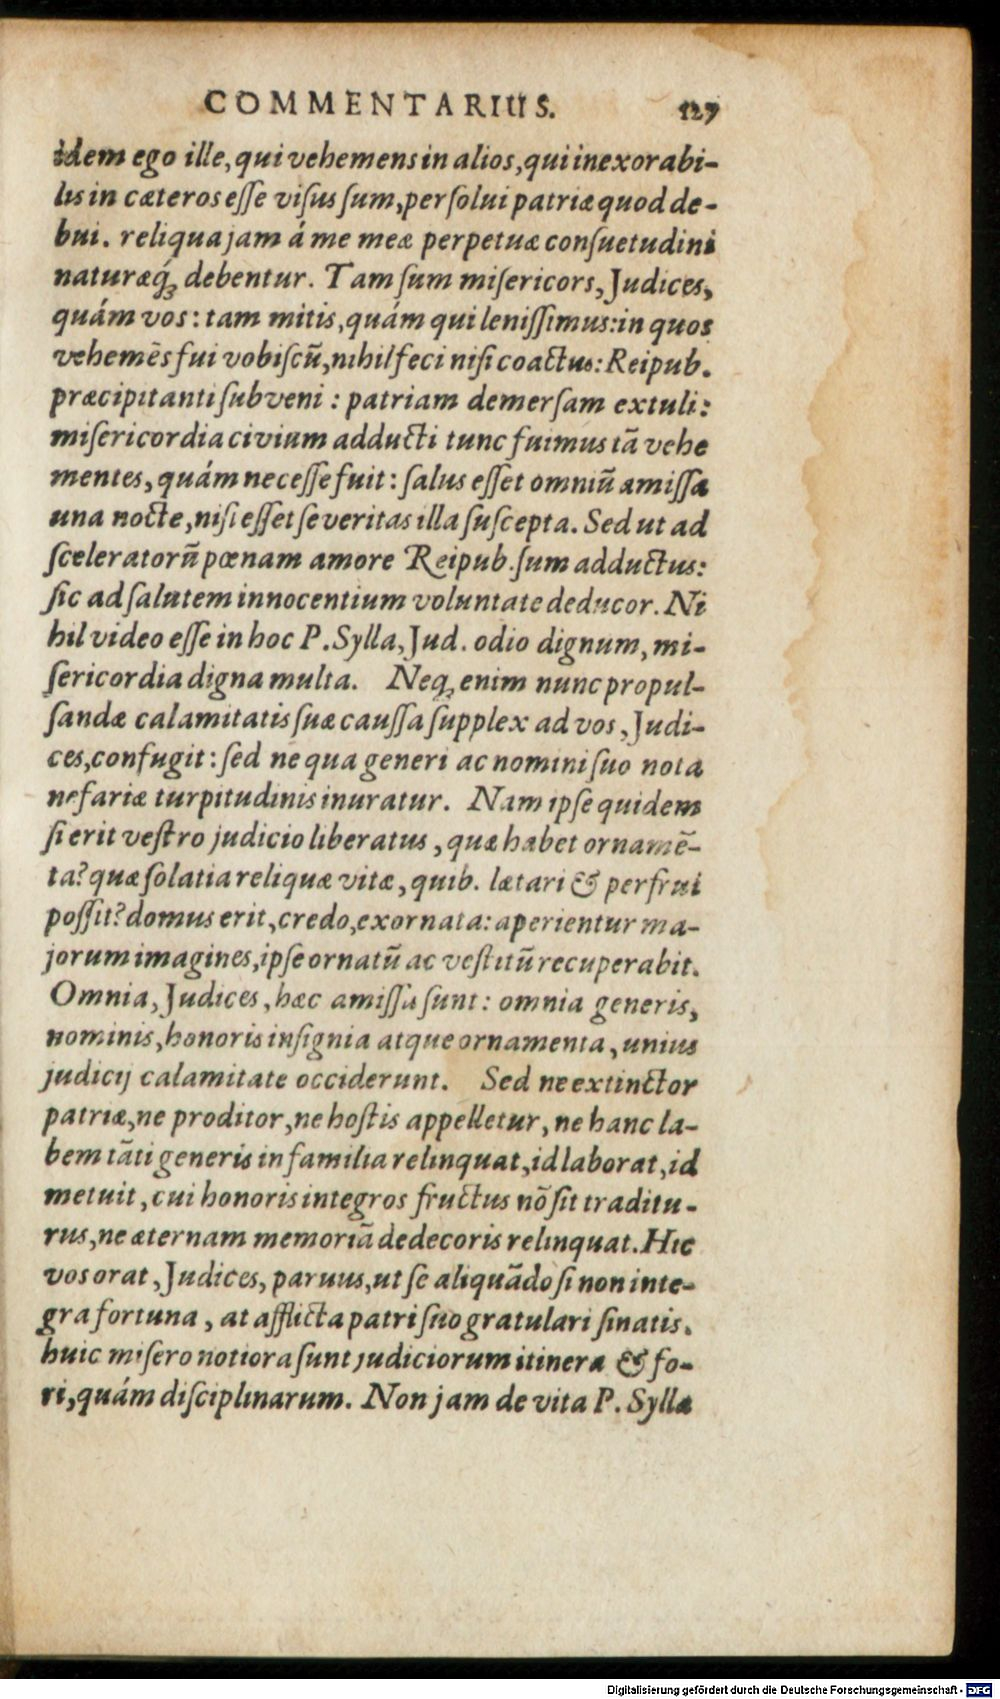 COMMENTARIUS. 127
idem ego ille, qui vehemens in alios, qui inexorabi-
lis in cæteros eſſe viſus ſum, perſolui patriæ quod de-
bui. reliqua jam á me meæ perpetuæ conſuetudini
naturæq́ꝫ debentur. Tam ſum miſericors, Judices,
quám vos: tam mitis, quám qui leniſſimus: in quos
vehemẽs fui vobiſcũ, nihil feci niſi coactus: Reipub.
præcipitanti ſubveni: patriam demerſam extuli:
miſericordia civium adducti tunc fuimus tã vehe
mentes, quám neceſſe fuit: ſalus eſſet omniũ amiſſa
una nocte, niſi eſſet ſeveritas illa ſuſcepta. Sed ut ad
ſceleratorũ pœnam amore Reipub. ſum adductus:
ſic ad ſalutem innocentium voluntate deducor. Ni
hil video eſſe in hoc P. Sylla, Jud. odio dignum, mi-
ſericordia digna multa. Neqꝫ enim nunc propul-
ſandæ calamitatis ſuæ cauſſa ſupplex ad vos, Judi-
ces, confugit: ſed ne qua generi ac nomini ſuo nota
nefariæ turpitudinis inuratur. Nam ipſe quidem
ſi erit veſtro judicio liberatus, quæ habet ornamẽ-
ta? quæ ſolatia reliquæ vitæ, quib. lætari & perfrui
poſſit? domus erit, credo, exornata: aperientur ma-
jorum imagines, ipſe ornatũ ac veſtitũ recuperabit.
Omnia, Judices, hæc amiſſa ſunt: omnia generis,
nominis, honoris inſignia atque ornamenta, unius
judicij calamitate occiderunt. Sed ne extinctor
patriæ, ne proditor, ne hoſtis appelletur, ne hanc la-
bem tãti generis in familia relinquat, id laborat, id
metuit, cui honoris integros fructus nõ ſit traditu-
rus, ne æternam memoriã dedecoris relinquat. Hic
vos orat, Judices, paruus, ut ſe aliquãdo ſi non inte-
gra fortuna, at afflicta patri ſuo gratulari ſinatis.
huic miſero notiora ſunt judiciorum itinera & fo-
ri, quám diſciplinarum. Non jam de vita P. Syllæ
Digitalisierung gefördert durch die Deutsche Forschungsgemeinschaft - DFG